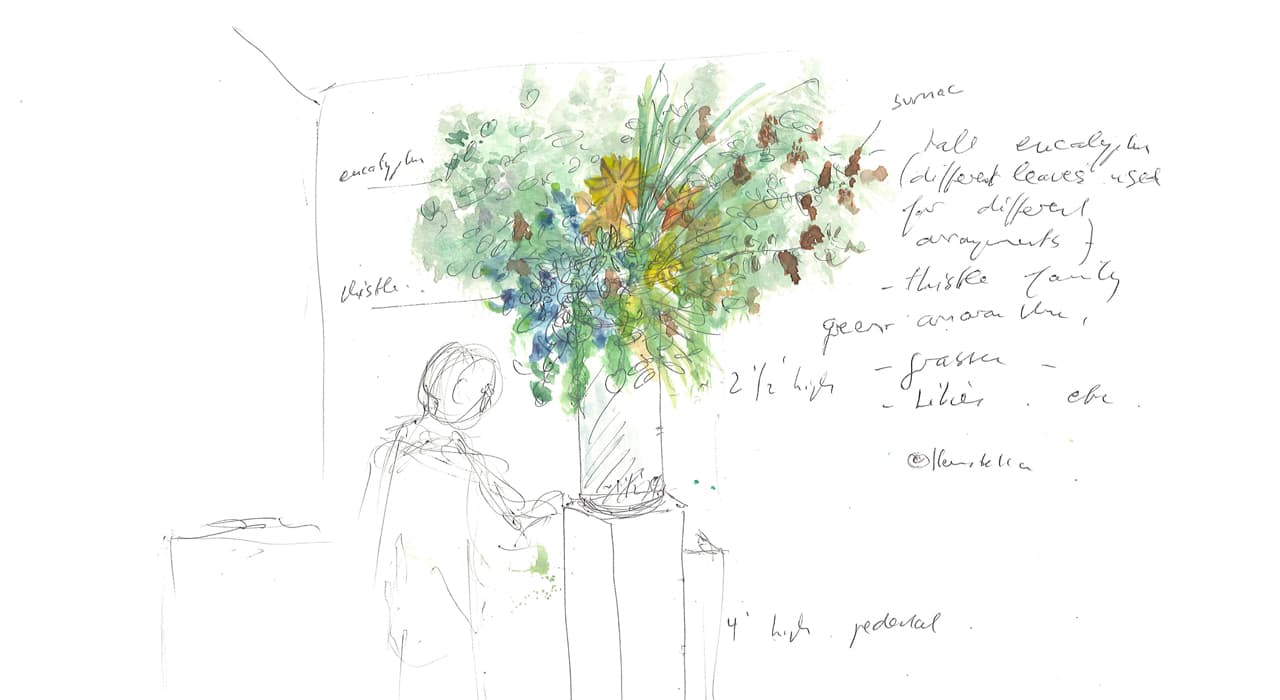 sumac
eucalyptus
tall eucalyptus
(different leaves used
for different
arrangements)
thistle
- thistle family
green
2 1/2' high
- grasses -
- Lilies . etc .
4' high pedestal .